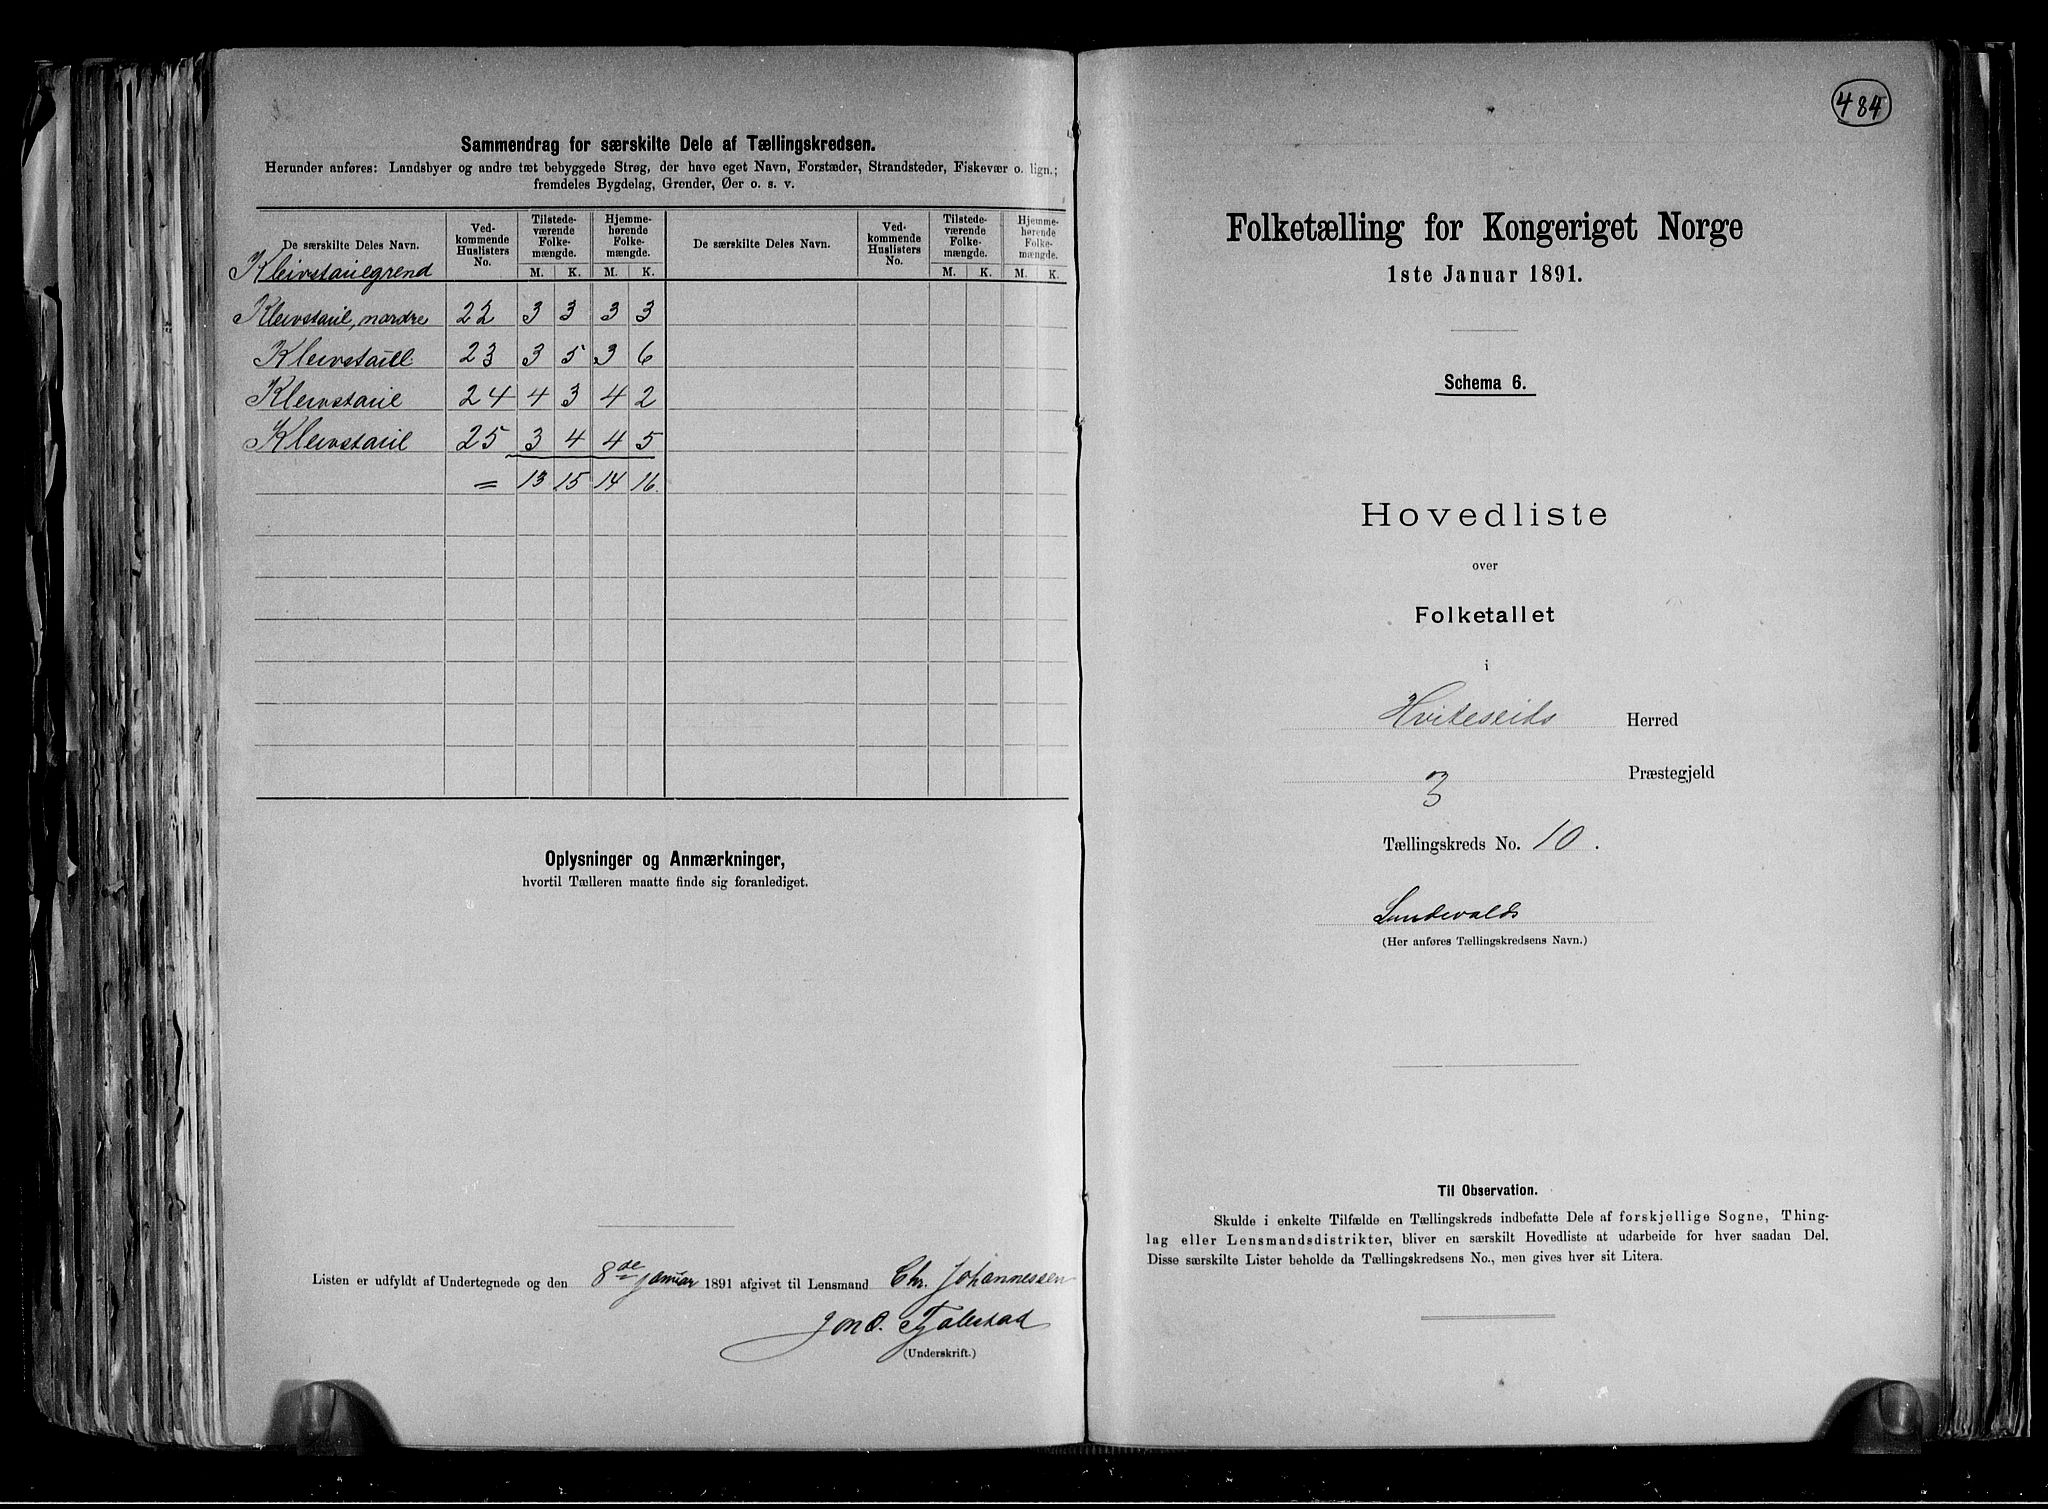 Sammendrag for særskilte Dele af Tællingskredsen.
Herunder anføres: Landsbyer og andre tæt bebyggede Strøg, der have eget Navn, Forstæder, Strandsteder, Fiskevær o. lign.;
fremdeles Bygdelag, Grender, Øer o. s. v.
De særskilte Deles Navn. Ved-kommende Huslisters No. Tilstede-værende Folke-mængde. Hjemme-hørende Folke-mængde. De særskilte Deles Navn. Ved-kommende Huslisters No. Tilstede-værende Folke-mængde. Hjemme-hørende Folke-mængde.
M. K. M. K. M. K. M. K.
Kleivstaulgrend
Kleivstaul, nordre 22 3 3 3 3
Kleivstaul 23 3 5 3 6
Kleivstaul 24 4 3 4 2
Kleivstaul 25 3 4 4 5
= 13 15 14 16.
Oplysninger og Anmærkninger,
hvortil Tælleren maatte finde sig foranlediget.
Listen er udfyldt af Undertegnede og den 8de januar 1891 afgivet til Lensmand Chr. Johannessen
Jon O. Fjalestad
(Underskrift.)
484
Folketælling for Kongeriget Norge
1ste Januar 1891.
Schema 6.
Hovedliste
over
Folketallet
i
Hviteseids Herred
Præstegjeld
Tællingskreds No. 10.
Sundevalds
(Her anføres Tællingskredsens Navn.)
Til Observation.
Skulde i enkelte Tilfælde en Tællingskreds indbefatte Dele af forskjellige Sogne, Thing-
lag eller Lensmandsdistrikter, bliver en særskilt Hovedliste at udarbeide for hver saadan Del.
Disse særskilte Lister beholde da Tællingskredsens No., men gives hver sit Litera.